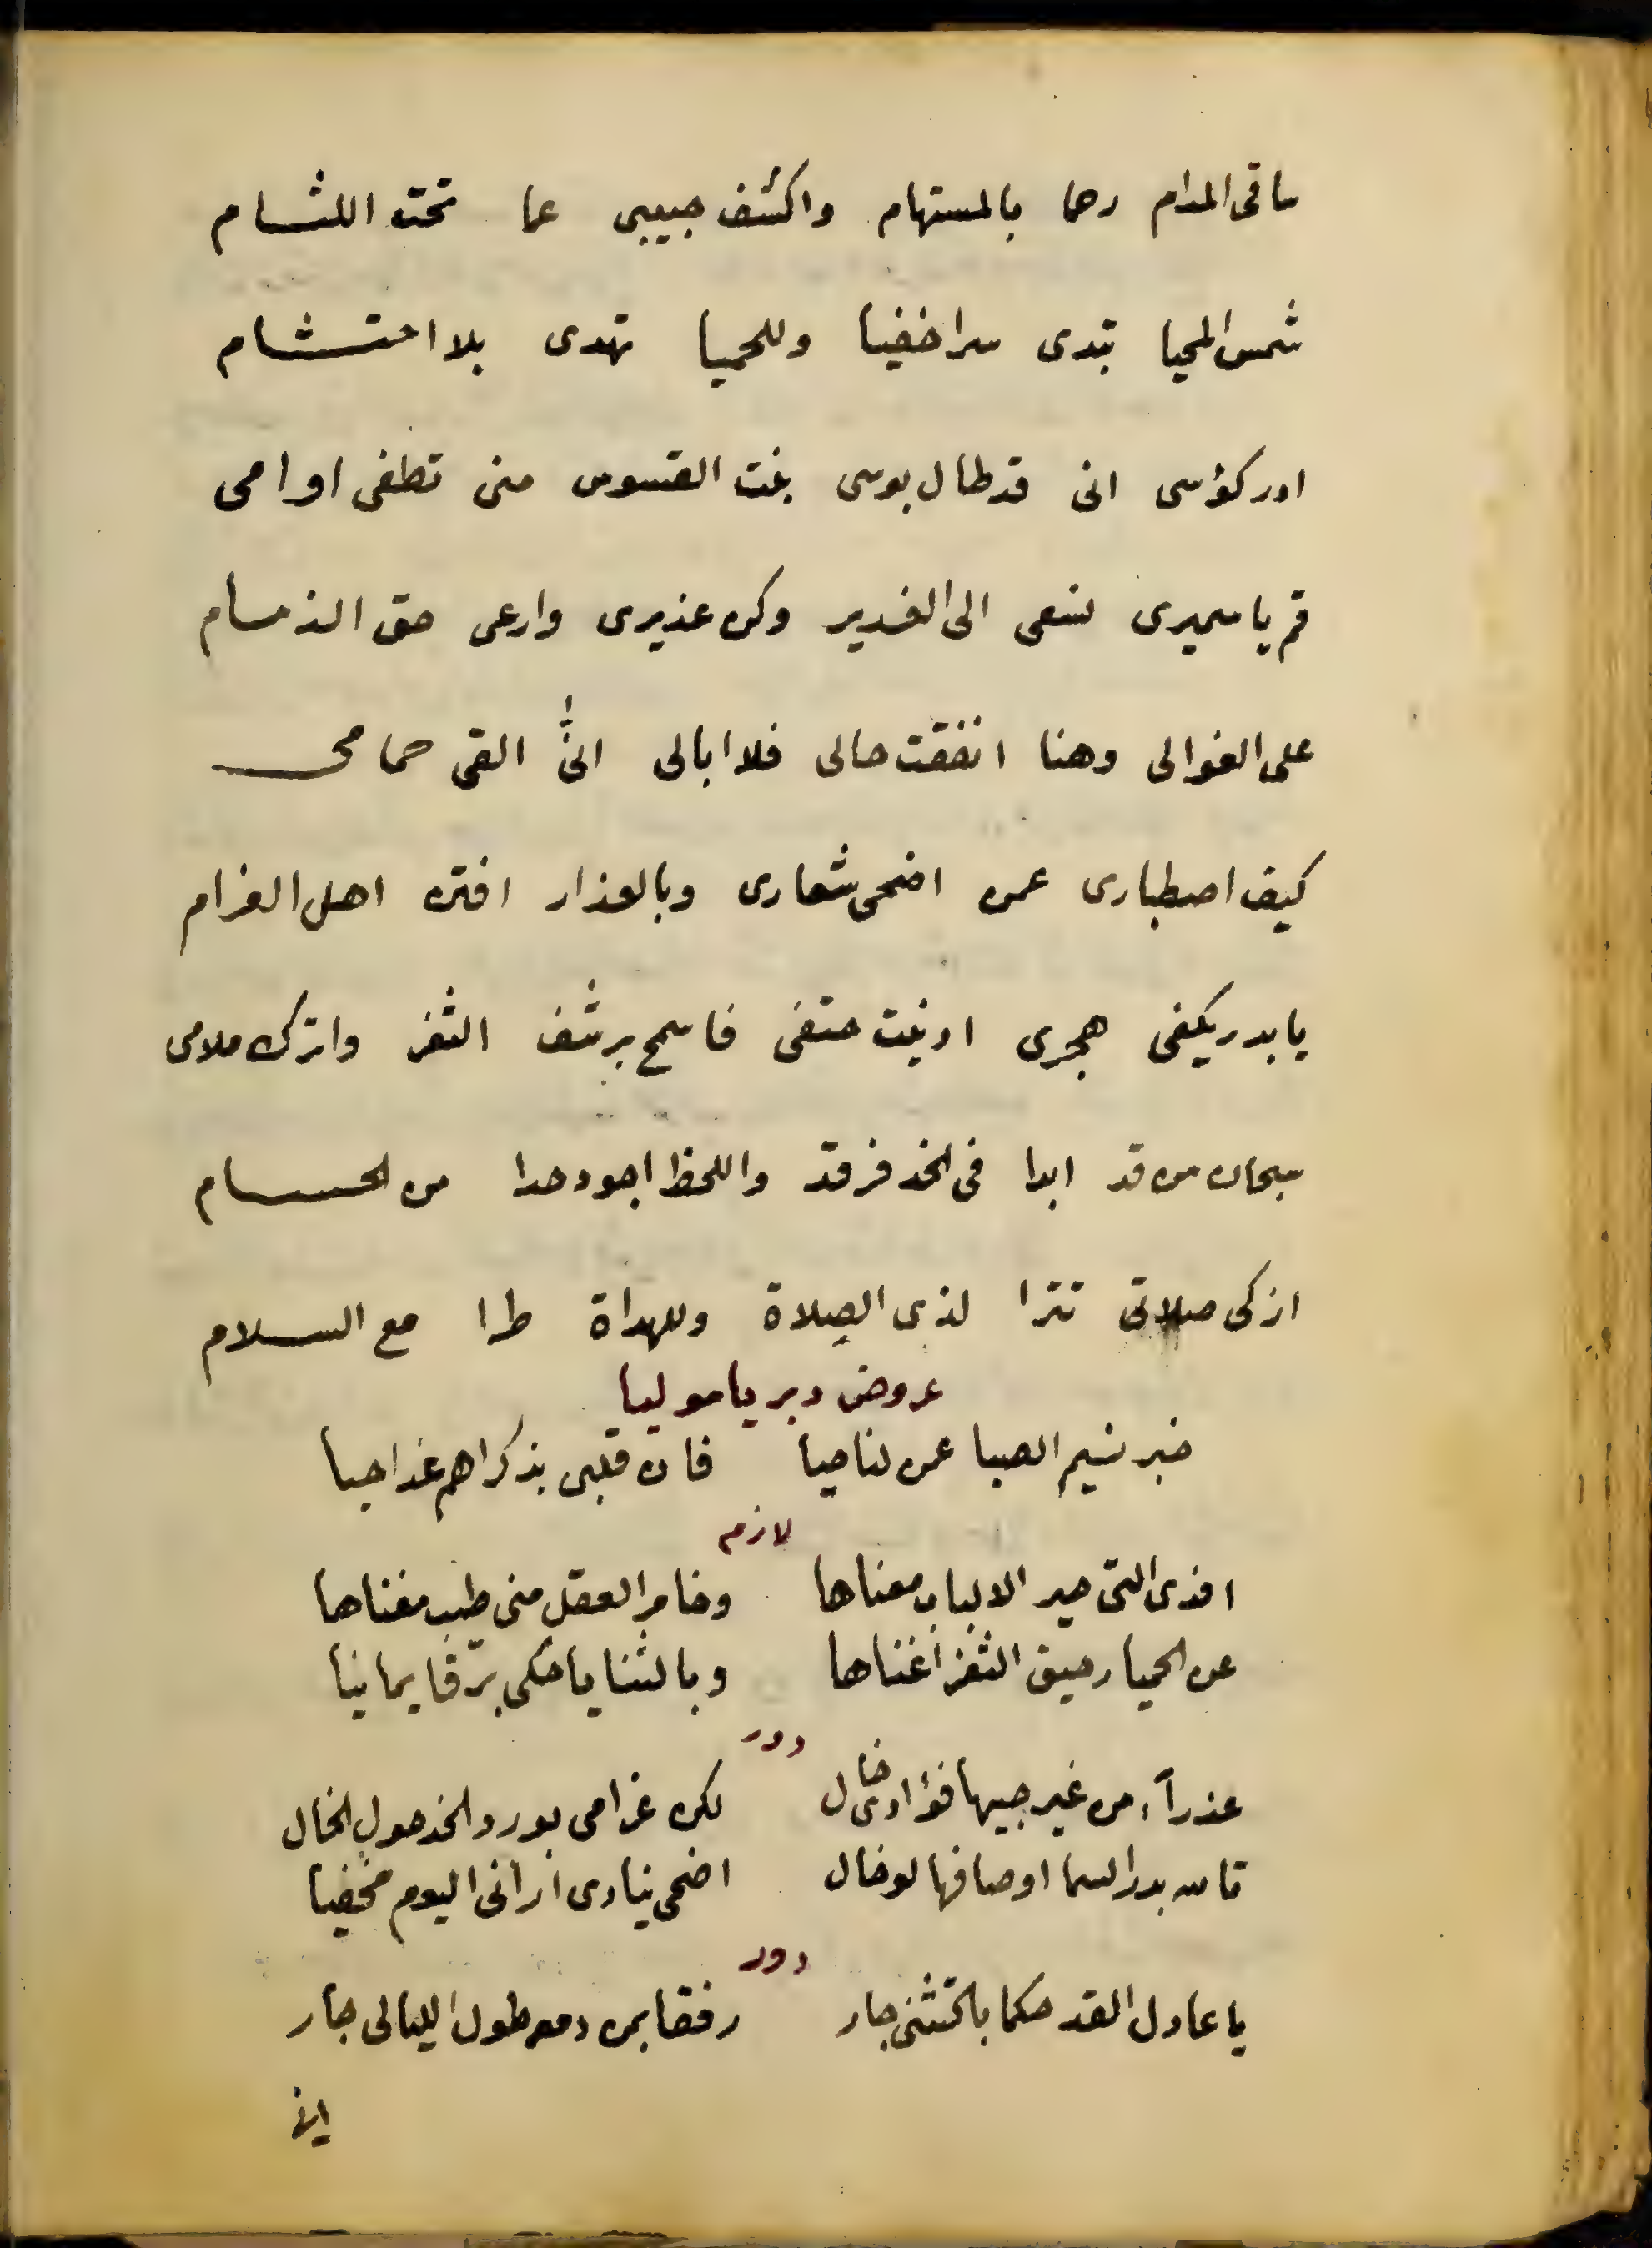 ساقى المدام رحما بالمستهام واكشف حبيبى عما تحت اللثام
شمس المحيا تبدى سرا خفيا وللحميا تهدى بلا احتشام
ادر كؤسى انى قد طال بوسى بنت القسوس منى تطفى اوامى
قم يا سميرى نسعى الى الغدير وكن عذيرى وارعى حق الذمام
على الغوالى وهنا انفقت حالى فلا ابالى انّى القى حمامى
كيف اصطبارى عمن اضحى شعارى وبالعذار افتن اهل الغرام
يا بدر يكفى هجرى ادنيت حتفى فاسمح برشف الثغر واترك ملامى
سبحان من قد ابدا فى الخد فرقد واللحظ اجود حدا من الحسام
ازكى صلاتى تترا لذى الصلاة وللهداة طرا مع السلام
عروض دبر يا موليا
خبر نسيم الصبا عمن لنا حيا فان قلبى بذكراهم غدا حيا
لازم
افدى التى حير الالباب معناها وخامر العقل منى طيب مغناها
عن الحميا رحيق الثغر أغناها وبالثنايا حكى برقا يمانيا
دور
عذرآء من غير حبيها فؤادى خال لكن غرامى بورد الخد حول الخال
قاس بدر السما اوصافها لو خال اضحى ينادى ارانى اليوم مخفيا
دور
يا عادل القد حكما بالتثنى جار رفقا بمن دمعه طول الليالى جار